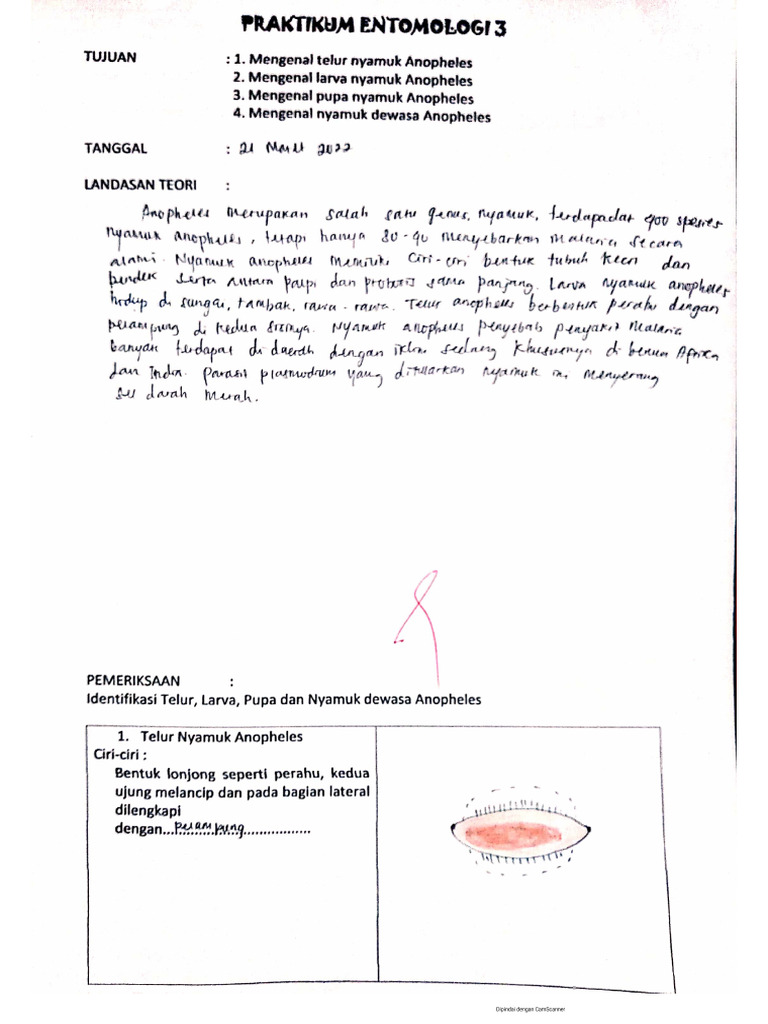 PRAKTIKUM ENTOMOLOGI 3
TUJUAN : 1. Mengenal telur nyamuk Anopheles
2. Mengenal larva nyamuk Anopheles
3. Mengenal pupa nyamuk Anopheles
4. Mengenal nyamuk dewasa Anopheles
TANGGAL : 21 Maret 2022
LANDASAN TEORI :
Anopheles merupakan salah satu genus nyamuk, terdapadat 400 spesies
nyamuk anopheles, tetapi hanya 30-40 menyebarkan malaria secara
alami. Nyamuk anopheles memiliki ciri-ciri bentuk tubuh kecil dan
pendek serta antara palpi dan probosis sama panjang. Larva nyamuk anopheles
hidup di sungai, tambak, rawa-rawa. Telur anopheles berbentuk perahu dengan
pelampung di kedua sisinya. Nyamuk anopheles penyebab penyakit malaria
banyak terdapat di daerah dengan iklim sedang khususnya di benua Afrika
dan India. Parasit plasmodium yang ditularkan nyamuk ini menyerang
sel darah merah.
PEMERIKSAAN :
Identifikasi Telur, Larva, Pupa dan Nyamuk dewasa Anopheles
1. Telur Nyamuk Anopheles
Ciri-ciri :
Bentuk lonjong seperti perahu, kedua
ujung melancip dan pada bagian lateral
dilengkapi
dengan...pelampung..................
Dipindai dengan CamScanner